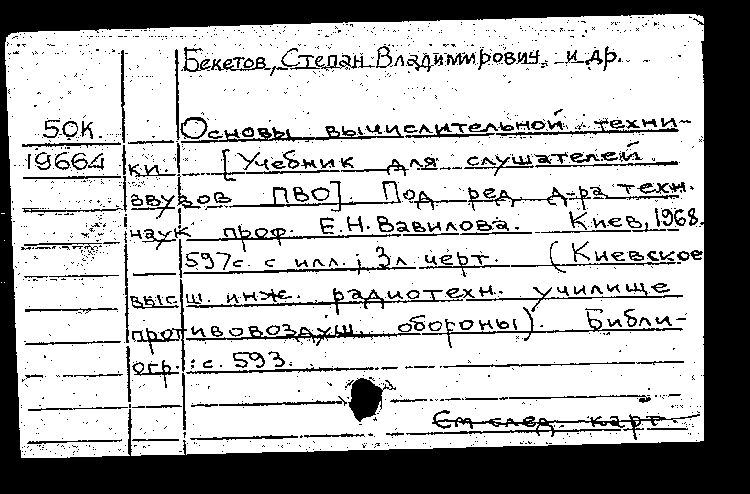 Бекетов, Степан Владимирович и др.
50К. Основы вычислительной техни-
19664 ки. [Учебник для слушателей
ввузов ПВО]. Под ред д-ра техн.
наук проф. Е.Н. Вавилова. Киев, 1968.
597с. с илл.; 3л черт. (Киевское
высш. инж. радиотехн. училище
противовоздуш. обороны). Библи-
огр.: с. 593.
См след. карт.